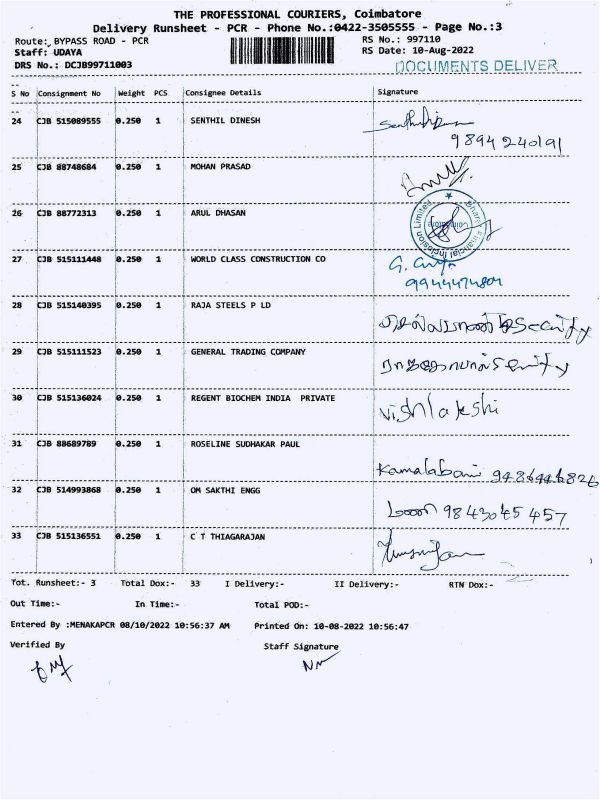 THE PROFESSIONAL COURIERS, Coimbatore
Delivery Runsheet - PCR - Phone No.:0422-3505555 - Page No.:3
Route: BYPASS ROAD - PCR RS No.: 997110
Staff: UDAYA RS Date: 10-Aug-2022
DRS No.: DCJB99711003 DOCUMENTS DELIVER
S No Consignment No Weight PCS Consignee Details Signature
24 CJB 515089555 0.250 1 SENTHIL DINESH
9894240191
25 CJB 88748684 0.250 1 MOHAN PRASAD
26 CJB 88772313 0.250 1 ARUL DHASAN
Financial Inclusion Limited
27 CJB 515111448 0.250 1 WORLD CLASS CONSTRUCTION CO
28 CJB 515140395 0.250 1 RAJA STEELS P LD
Security
29 CJB 515111523 0.250 1 GENERAL TRADING COMPANY
30 CJB 515136024 0.250 1 REGENT BIOCHEM INDIA PRIVATE
31 CJB 88689789 0.250 1 ROSELINE SUDHAKAR PAUL
32 CJB 514993868 0.250 1 OM SAKTHI ENGG
9843045457
33 CJB 515136551 0.250 1 C T THIAGARAJAN
Tot. Runsheet:- 3 Total Dox:- 33 I Delivery:- II Delivery:- RTN Dox:-
Out Time:- In Time:- Total POD:-
Entered By :MENAKAPCR 08/10/2022 10:56:37 AM Printed On: 10-08-2022 10:56:47
Verified By Staff Signature